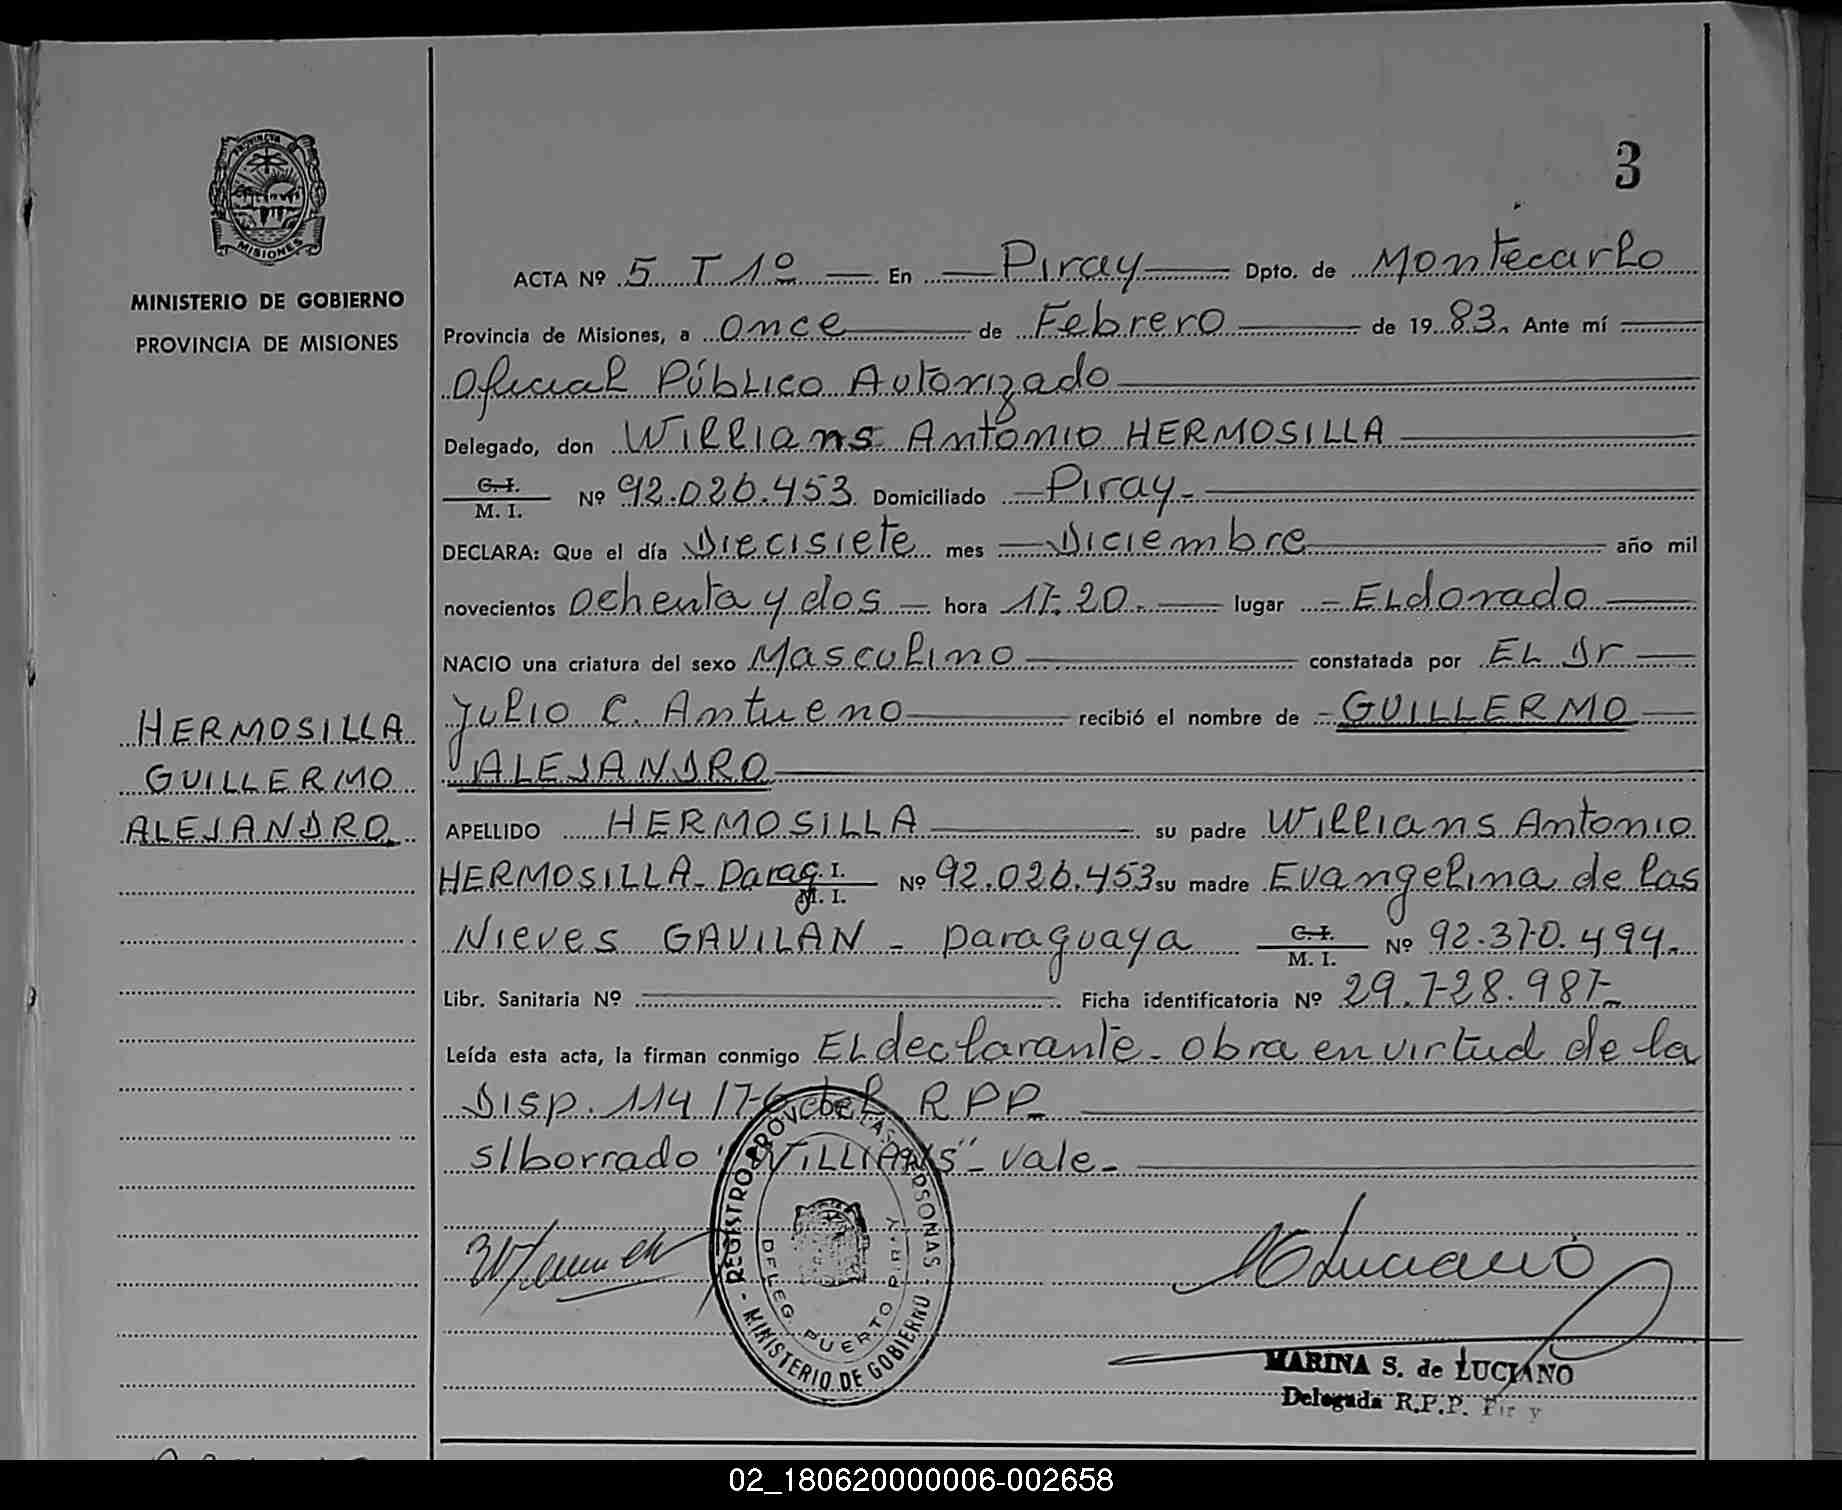 3
PROVINCIA
MISIONES
MINISTERIO DE GOBIERNO
PROVINCIA DE MISIONES
ACTA Nº 5 T 1º En Piray Dpto. de Montecarlo
Provincia de Misiones, a once de Febrero de 1983. Ante mí
Oficial Público Autorizado
Delegado, don Willians Antonio HERMOSILLA
C. I.
M. I. Nº 92.026.453 Domiciliado Piray-
DECLARA: Que el día Diecisiete mes Diciembre año mil
novecientos ochenta y dos hora 17.20. lugar Eldorado
NACIO una criatura del sexo Masculino constatada por EL Dr
Julio C. Antueno recibió el nombre de GUILLERMO
ALEJANDRO
HERMOSILLA
GUILLERMO
ALEJANDRO.
APELLIDO HERMOSILLA su padre Willians Antonio
HERMOSILLA- Parag. C. I.
M. I. Nº 92.026.453 su madre Evangelina de las
Nieves GAVILAN - paraguaya C. I.
M. I. Nº 92.370.494.
Libr. Sanitaria Nº Ficha identificatoria Nº 29.728.987-
Leída esta acta, la firman conmigo EL declarante- obra en virtud de la
Disp. 114/76 del RPP-
s/borrado "WILLIANS"- vale-
REGISTRO PROV. DE LAS PERSONAS - MINISTERIO DE GOBIERNO -
DELEG. PUERTO PIRAY
Luciano
MARINA S. de LUCIANO
Delegada R.P.P. Piray
02_180620000006-002658